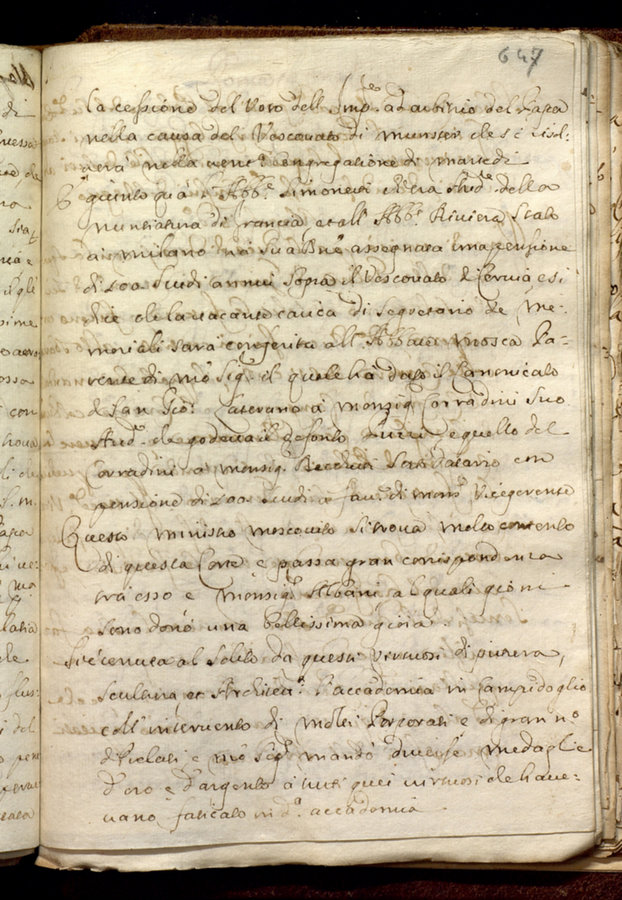 647
la cessione del Voto dell' Imp.re ad arbitrio del Papa
nella causa del Vescovato di Munster che si risol-
verà nella vent.a Congregatione di Martedi
È giunto quà l'Abb.e Simonetti ch'era Aud.e della
nuntiatura di Francia et all'Abb.e Riviera stato
a Milano hà Sua Bne assegnata una pensione
di 200 scudi annui sopra il Vescovato di Cervia e si
dice che la vacante carica di Segretario de Me-
moriali sarà conferita all' Abbate Mosca Pa-
rente di Nrô Sig.re il quale hà dato il Canonicato
di San Gio: Laterano à Monsig. Corradini suo
Aud.e che godeva il defonto e quello del
Corradini a Monsig. Sottodatario con
pensione di 200 scudi a fav.e di Mons.r Vicegerente
Questo ministro moscovito si trova molto contento
di questa Corte e passa gran corrispondenza
trà esso e Monsig.r Albani al quale giorni
sono donò una bellissima gioia.
Si è tenuta al solito da questi virtuosi di pittura,
scultura, et Architett.a l'accademia in Campidoglio
coll' intervento di molti Porporati e di gran n.o
di Prelati e Nrô Sig.re mandò diverse medaglie
d'oro e d'argento à tutti quei virtuosi che have-
vano faticato in d.a accademia